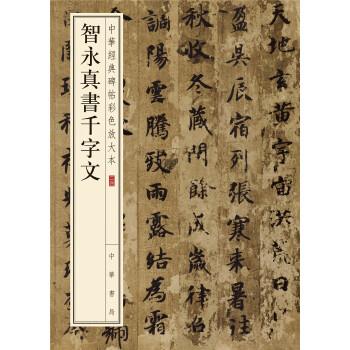 天地玄黄宇宙洪荒日
盈昃辰宿列張寒来暑往
秋收冬藏閏餘成歲律召
調陽雲騰致雨露結為霜
中華經典碑帖彩色放大本
智永真書千字文
中華書局